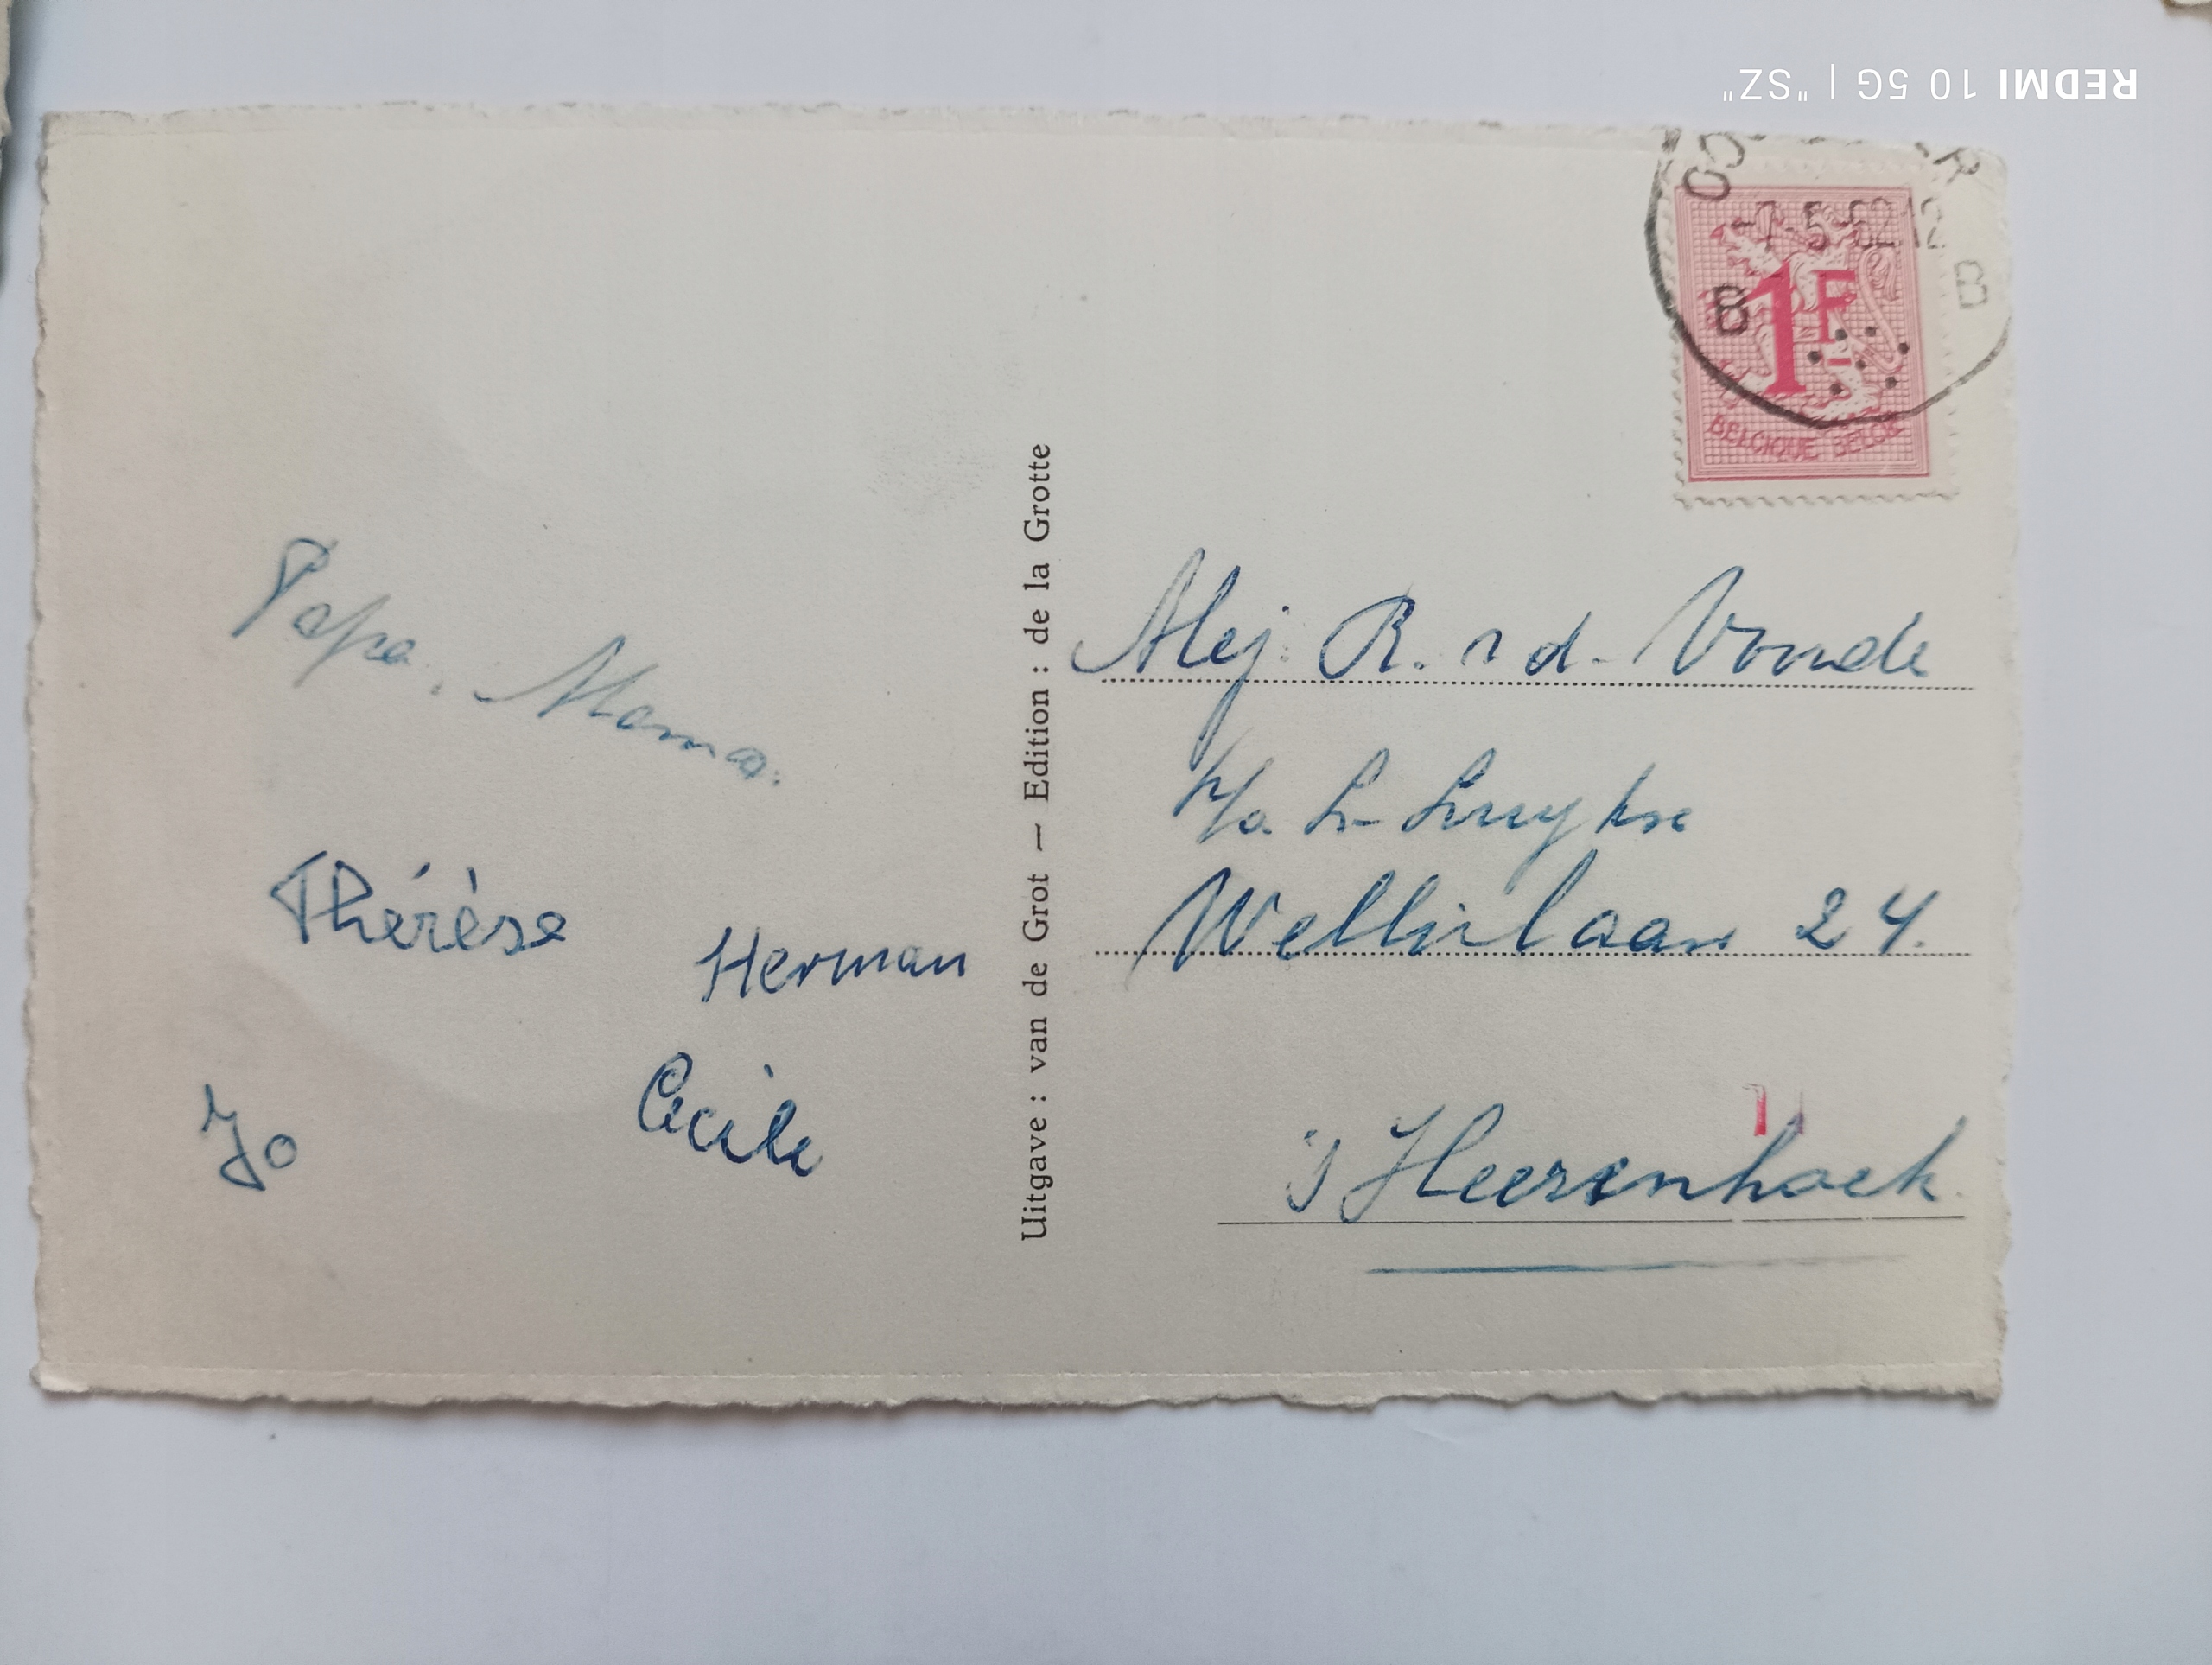 REDMI 10 5G | "SZ"
-7-5-52 12
B B
1F
BELGIQUE BELGIË
Papa, Mama.
Thérèse
Herman
Jo
Cecile
Uitgave : van de Grot — Edition : de la Grotte
Mej. R. v d. Vonde
p/a L. Luykx
laan 24.
's Heerenhoek.